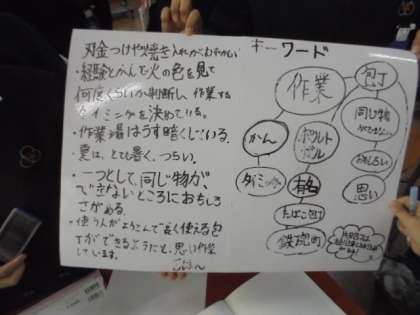 刃金つけや焼き入れがむずかしい
・経験とかんで火の色を見て
何度くらいか判断し、作業する
タイミングを決めている。
・作業場はうす暗くしている。
・夏は、とても暑く、つらい。
・一つとして、同じ物が
できないところにおもしろ
さがある。
・使う人がよろこんで長く使える包
丁ができるようにと、思い作業
しています。
キーワード
作業
包丁
同じ物
ができない
おもしろい
思い
かん
タイミング
ボルト
有名
たばこ包丁
鉄砲